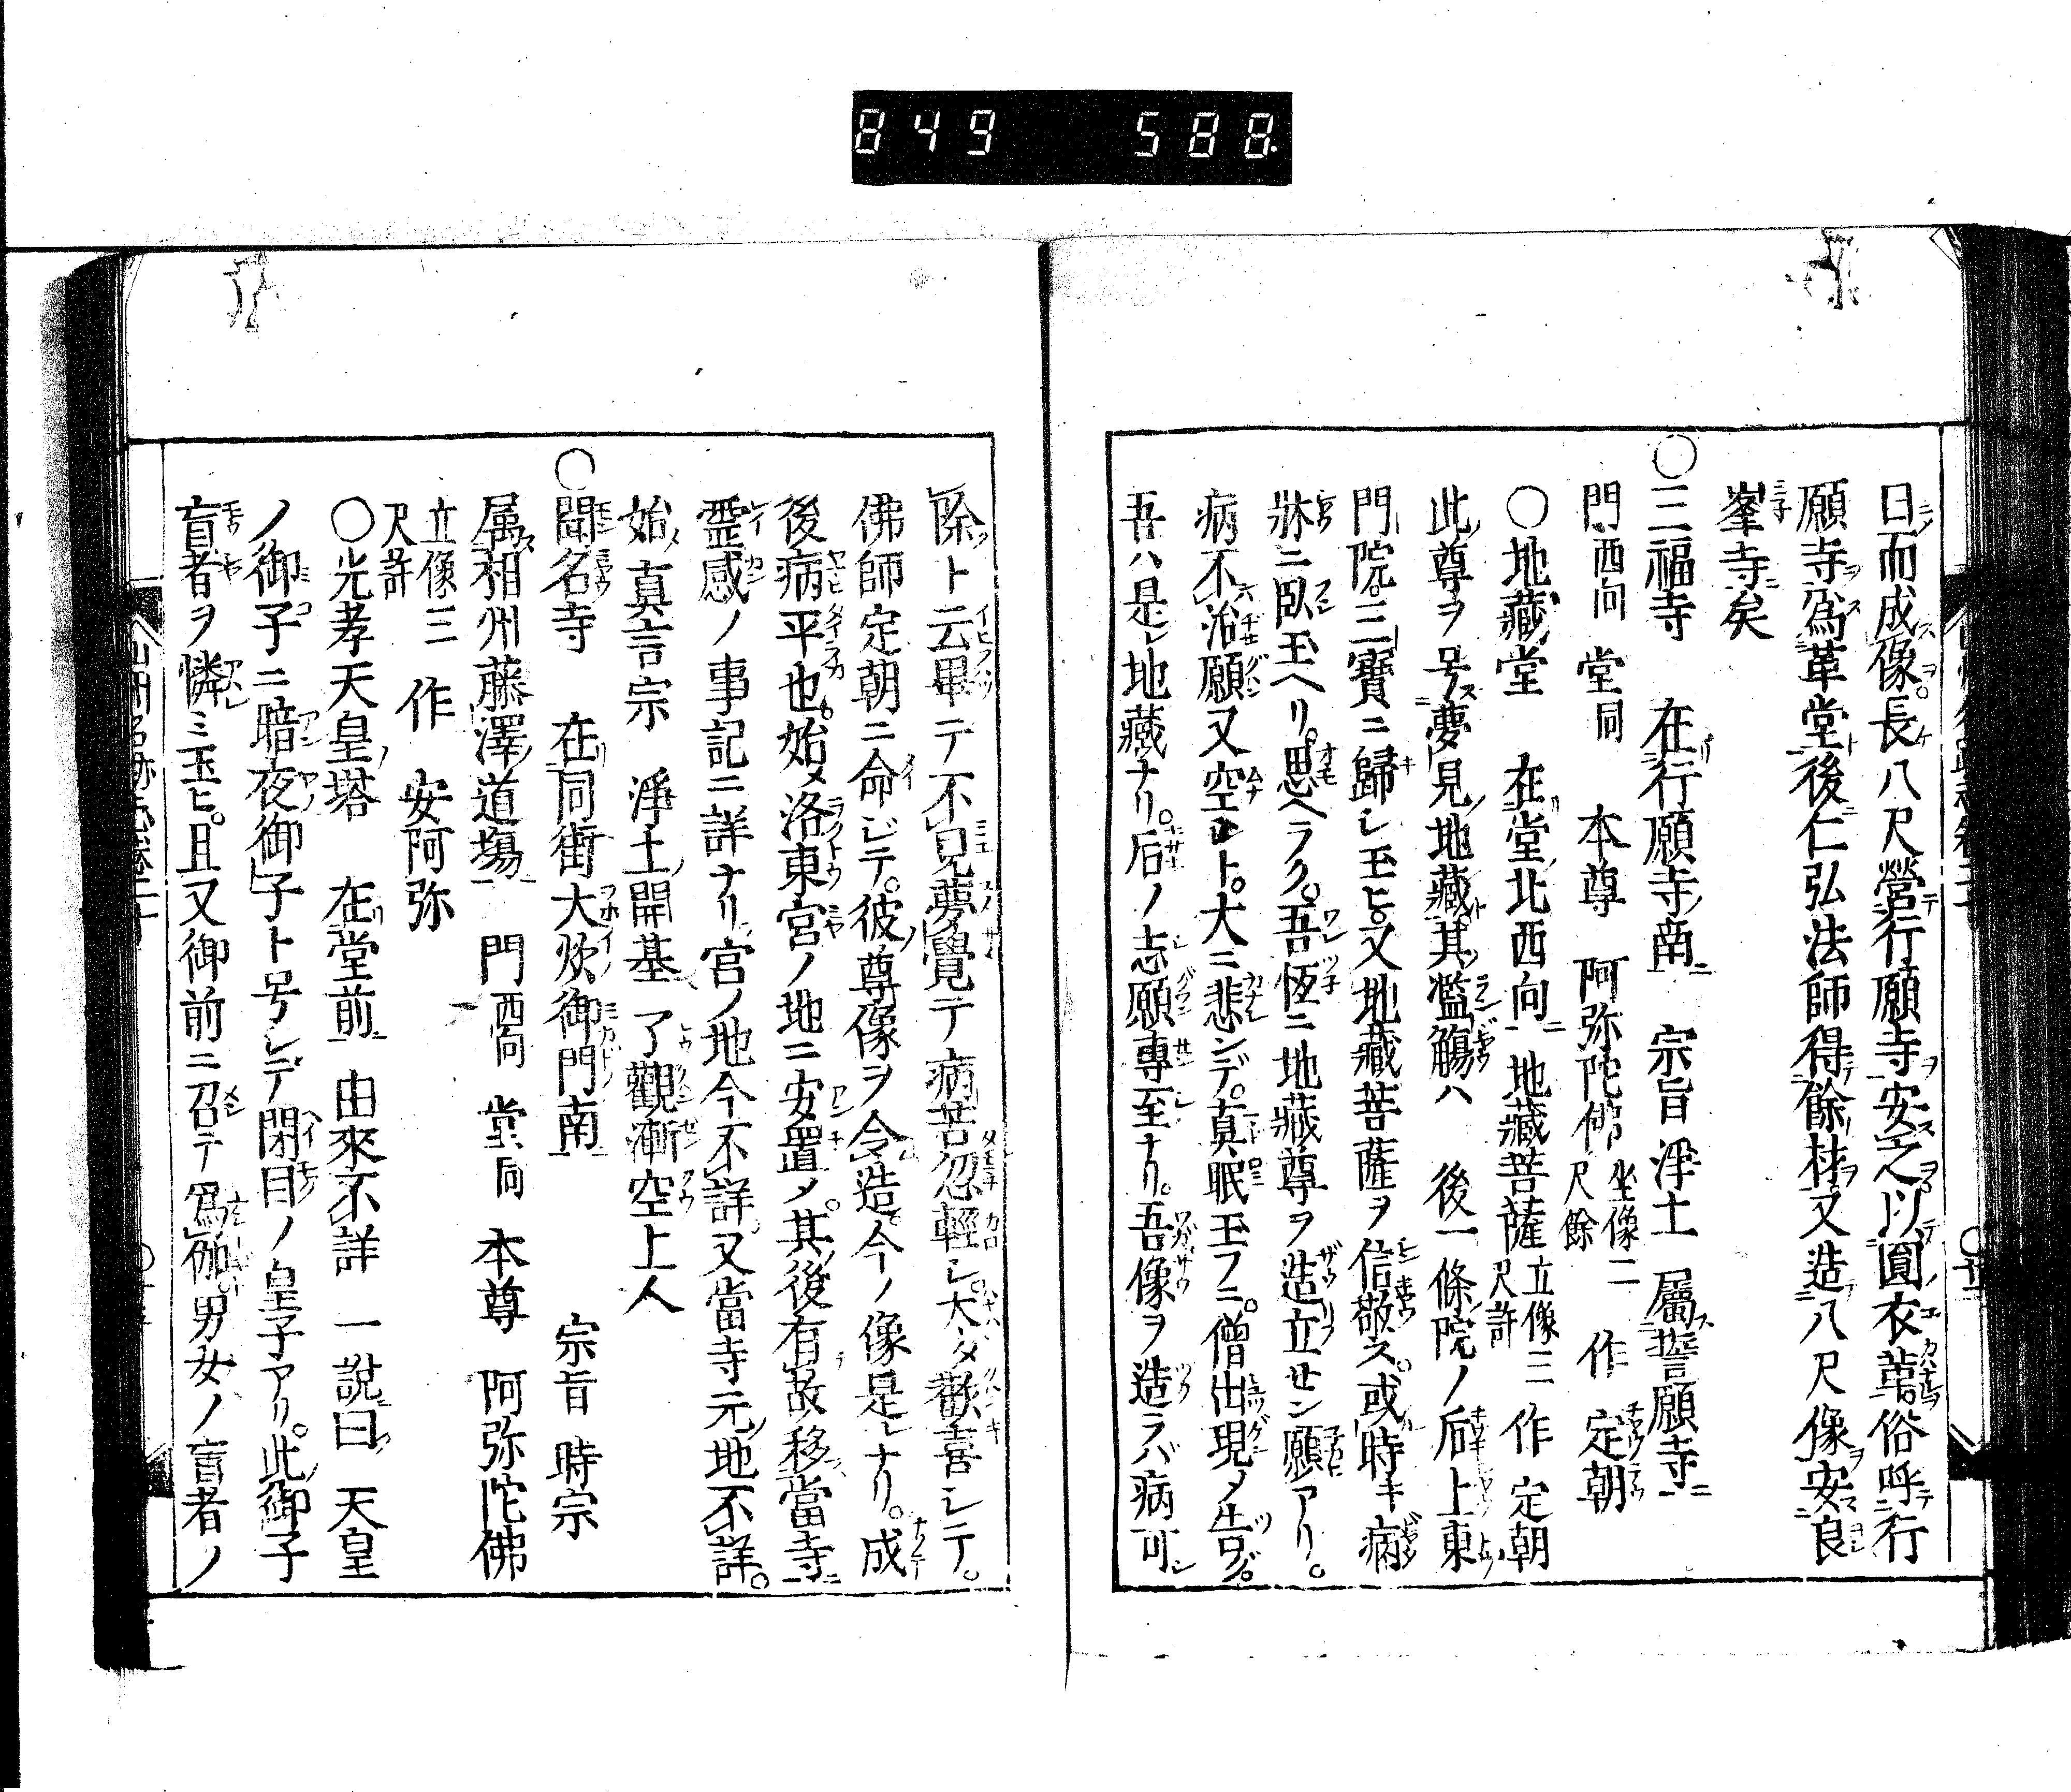 849 588
日而成像長八尺營行願寺安之以圓衣革俗呼行
願寺爲革堂後仁弘法師得餘材又造八尺像安良
峯寺矣
〇三福寺 在行願寺南 宗旨淨土 屬誓願寺
門西向 堂同 本尊 阿弥陀佛 坐像二尺餘 作 定朝
〇地藏堂 在堂北西向 地藏菩薩 立像三尺許 作 定朝
此尊ヲ号夢見地藏其濫觴ハ 後一條院ノ后上東
門院三寶ニ歸シ玉ヒ又地藏菩薩ヲ信敬ス或時キ病
牀ニ臥玉ヘリ思ヘラク吾恆ニ地藏尊ヲ造立セン願アリ
病不治願又空シト大ニ悲ンデ真眠玉フニ僧出現ノ告グ
吾ハ是レ地藏ナリ后ノ志願專至ナリ吾像ヲ造ラバ病可
除ト云畢テ不見夢覺テ病苦忽輕シ大タ歡喜シテ
佛師定朝ニ命ジテ彼尊像ヲ令造今ノ像是レナリ成
後病平也始メ洛東宮ノ地ニ安置ノ其後有故移當寺
霊感ノ事記ニ詳ナリ宮ノ地今不詳又當寺元地不詳
始真言宗 淨土開基 了觀漸空上人
〇聞名寺 在同街大炊御門南 宗旨 時宗
属相州藤澤道場 門西向 堂同 本尊 阿弥陀佛
立像三尺許 作 安阿弥
〇光孝天皇塔 在堂前 由來不詳 一說曰 天皇
ノ御子ニ暗夜御子ト号シテ閉目ノ皇子アリ此御子
盲者ヲ憐ミ玉ヒ且又御前ニ召テ爲伽男女ノ盲者ノ